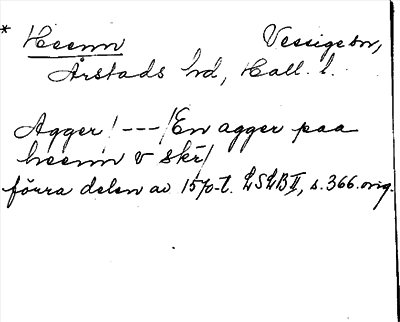 * Heenn Vessige sn,
Årstads hd, Hall. l.
Agger! --- /En agger paa
heenn v skr/
förra delen av 1570-t. LSLB II, s. 366. orig.